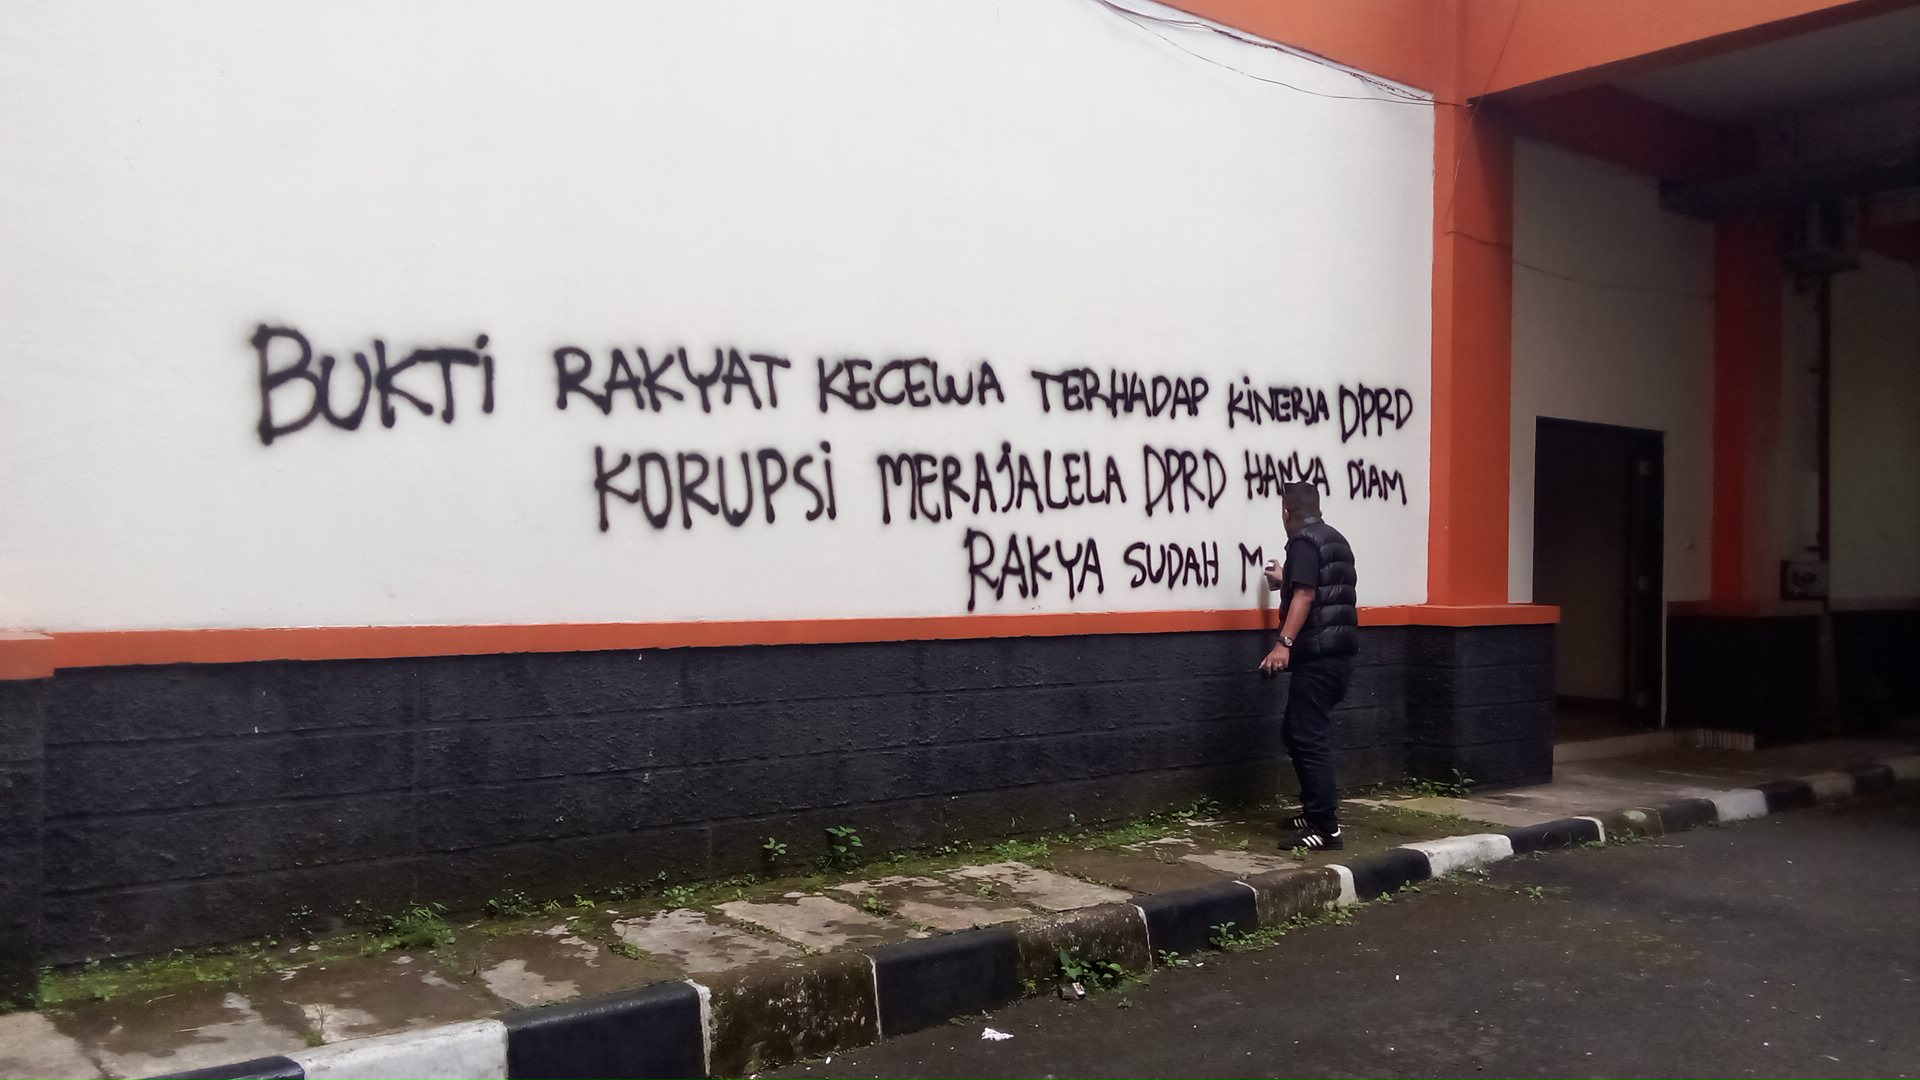 BUKTi RAKYAT KECEWA TERHADAP KiNERJA DPRD
KORUPSi MERAjALELA DPRD HANYA DiAM
RAKYA SUDAH M